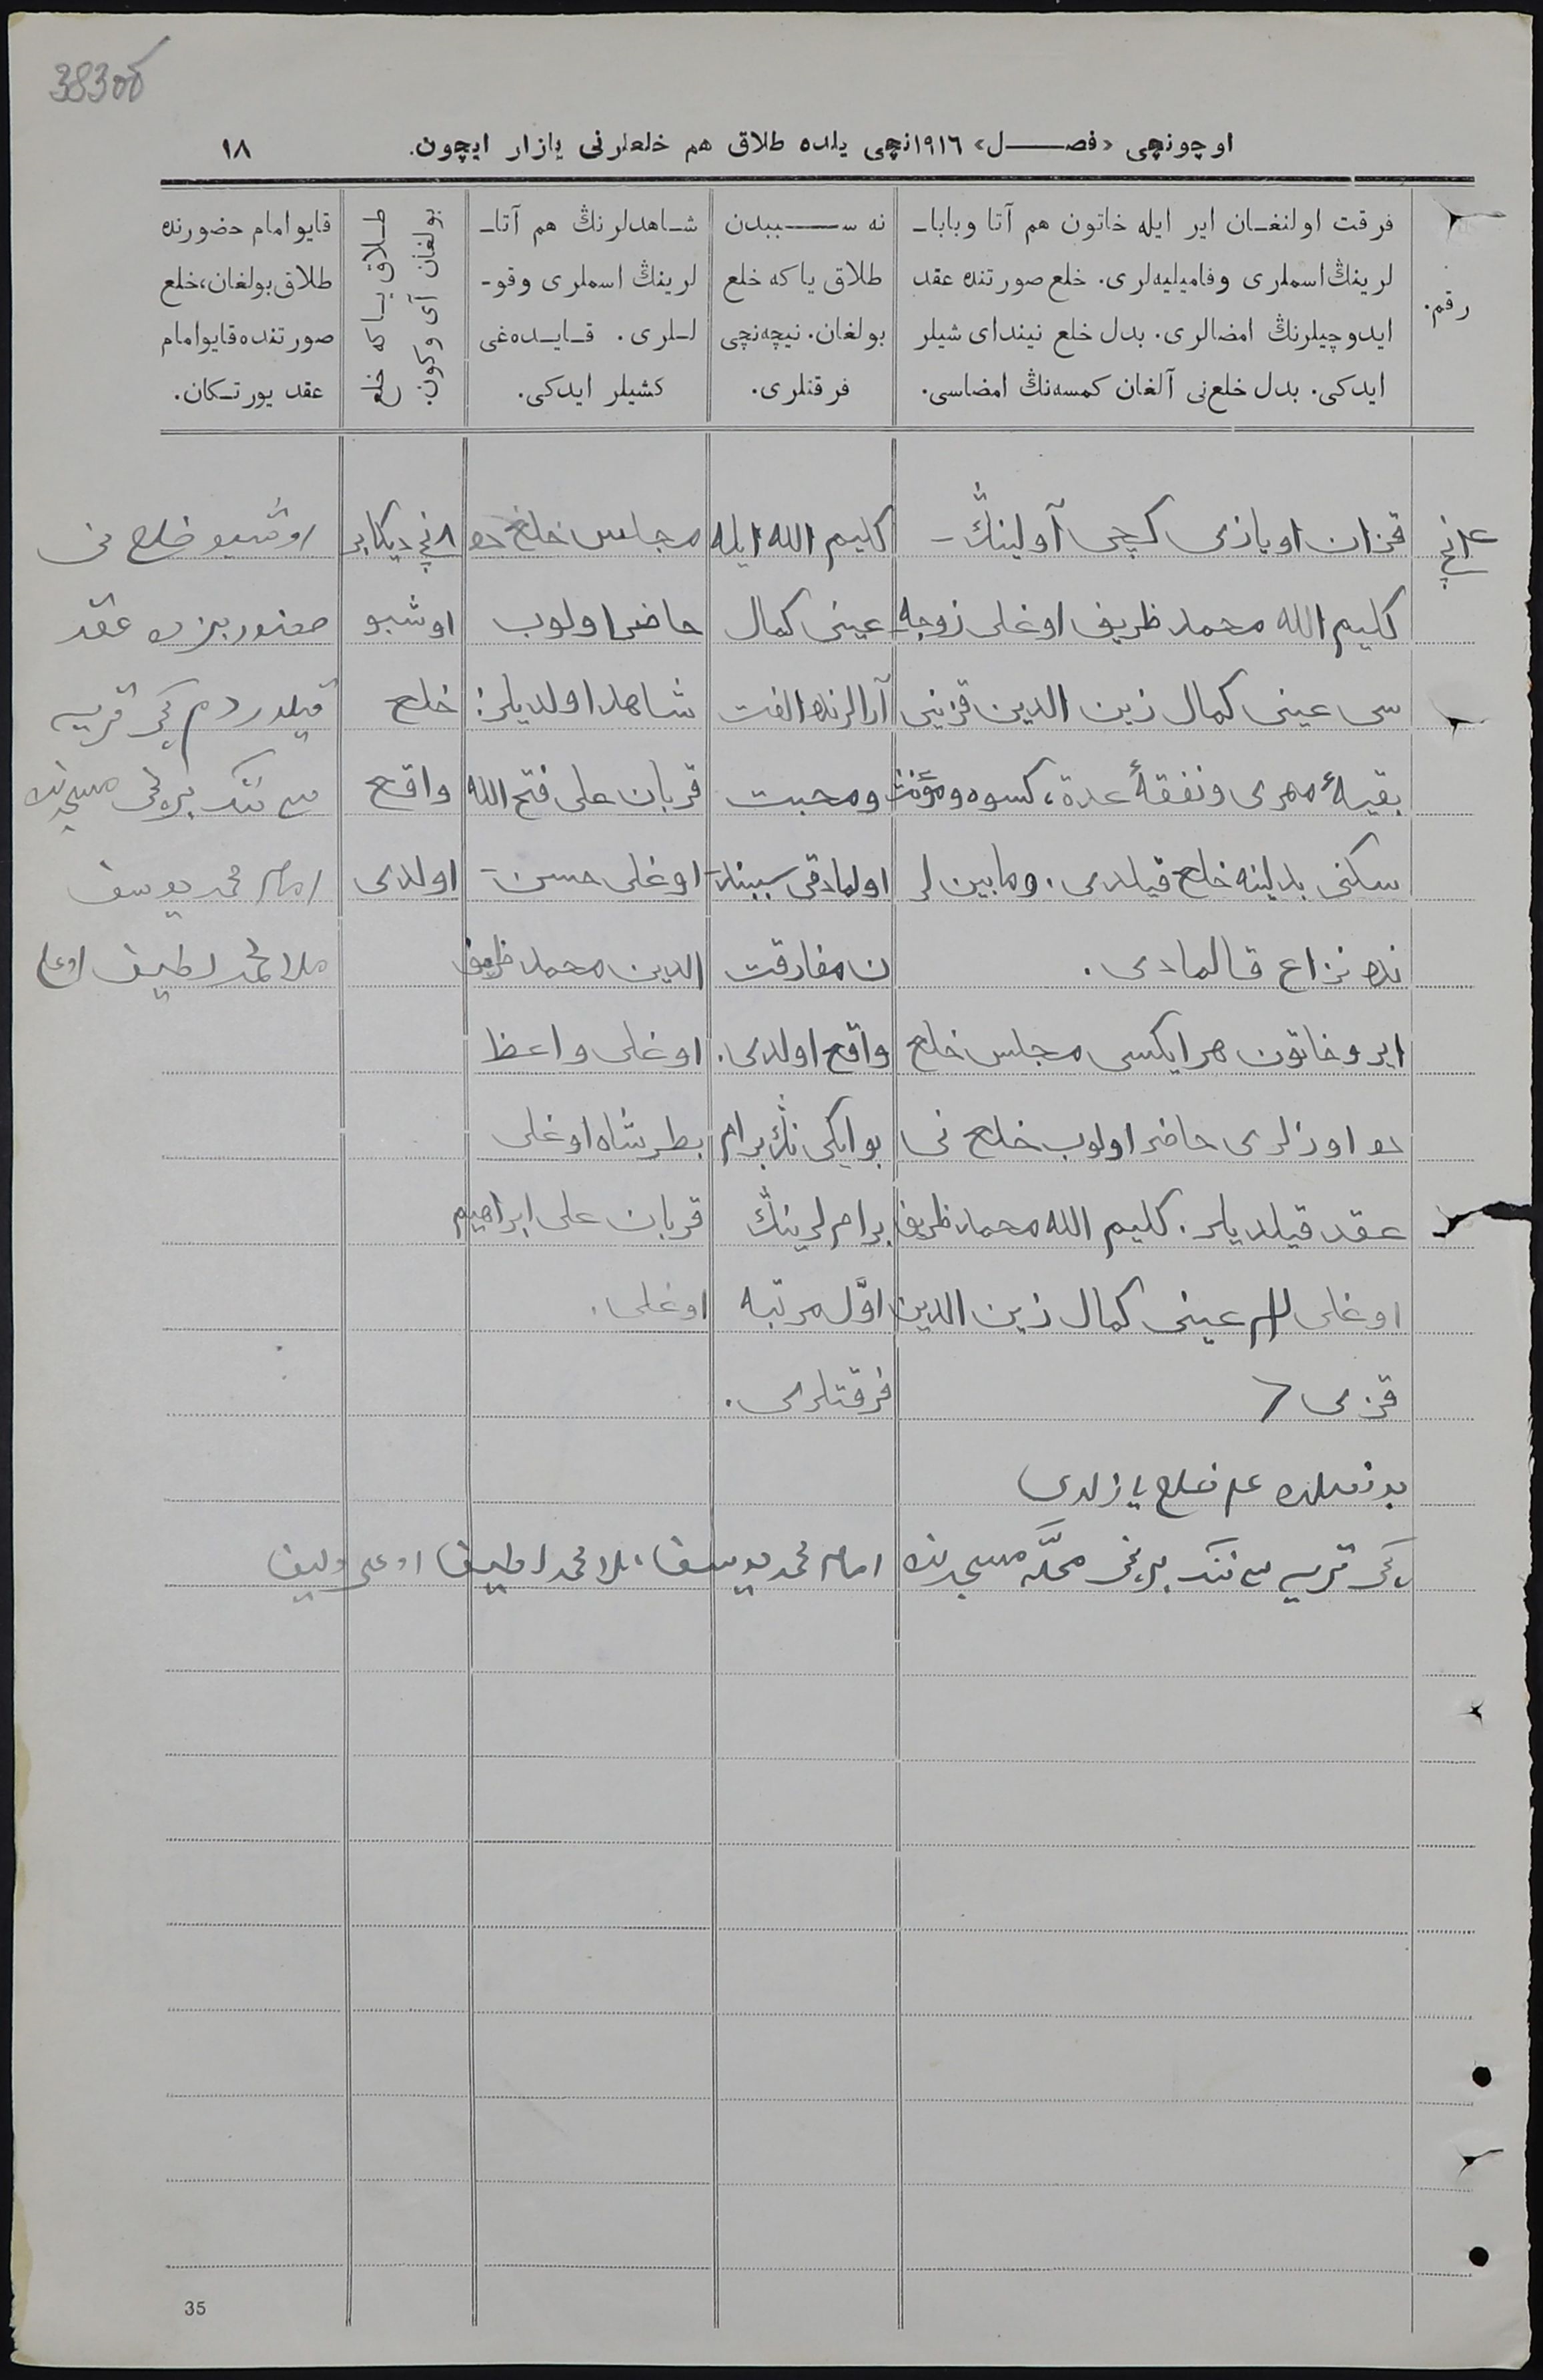 383об
اوچونچی «فصل» ١٩١٦نچی یلده طلاق هم خلعلرنی یازار ایچون.
١٨
رقم.
فرقت اولنغان ایر ایله خاتون هم آتا وبابا-
لرینڭ اسملری وفامیلیه‌لری. خلع صورتنده عقد
ایدوچیلرنڭ امضالری. بدل خلع نیندای شیلر
ایدکی. بدل خلع‌نی آلغان کمسه‌نڭ امضاسی.
نه سببدن
طلاق یاکه خلع
بولغان. نیچه‌نچی
فرقتلری.
شاهدلرنڭ هم آتا-
لرینڭ اسملری وقو-
للری. قایده‌غی
کشیلر ایدکی.
طلاق یاکه خلع
بولغان آی وکون
قایو امام حضورنده
طلاق بولغان، خلع
صورتنده قایو امام
عقد یورتکان.
قزان اویازی کچی آولینڭ-
کلیم الله محمد ظریف اوغلی زوجه
سی عینی کمال زین الدین قزینی
بقیهٔ مهری ونفقهٔ عدة، کسوه ومؤنت
سکنی بدلینه خلع قیلدی. ومابین لر
نده نزاع قالمادی.
ایر وخاتون هر ایکسی مجلس خلع
ده اوزلری حاضر اولوب خلع نی
عقد قیلدیلر. کلیم الله محمد ظریف
اوغلی عینی کمال زین الدین
قزی
خلع یازلدی
کلیم الله ایله
عینی کمال
آرالرنده الفت
ومحبت
اولمادقی سببند-
ن مفارقت
واقع اولدی.
بو ایکی نڭ برام
برام لرینڭ
اوّل مرتبه
فرقتلری.
مجلس خلع ده
حاضر اولوب
شاهد اولدیلر:
قربان علی فتح الله
اوغلی حسن-
الدین محمد ظریف
اوغلی واعظ
بطرشاه اوغلی
قربان علی ابراهیم
اوغلی.
دیکابر
اوشبو
خلع
واقع
اولدی
اوشبو خلع نی
حضوربزده عقد
قیلدردم کچی قریه
سی ننک برنچی مسجدنده
امام محمد یوسف
ملا محمد لطیف اوغلی
کچی قریه سی ننک برنچی محلّه مسجدنده امام محمد یوسف ملا محمد لطیف اوغلی
35